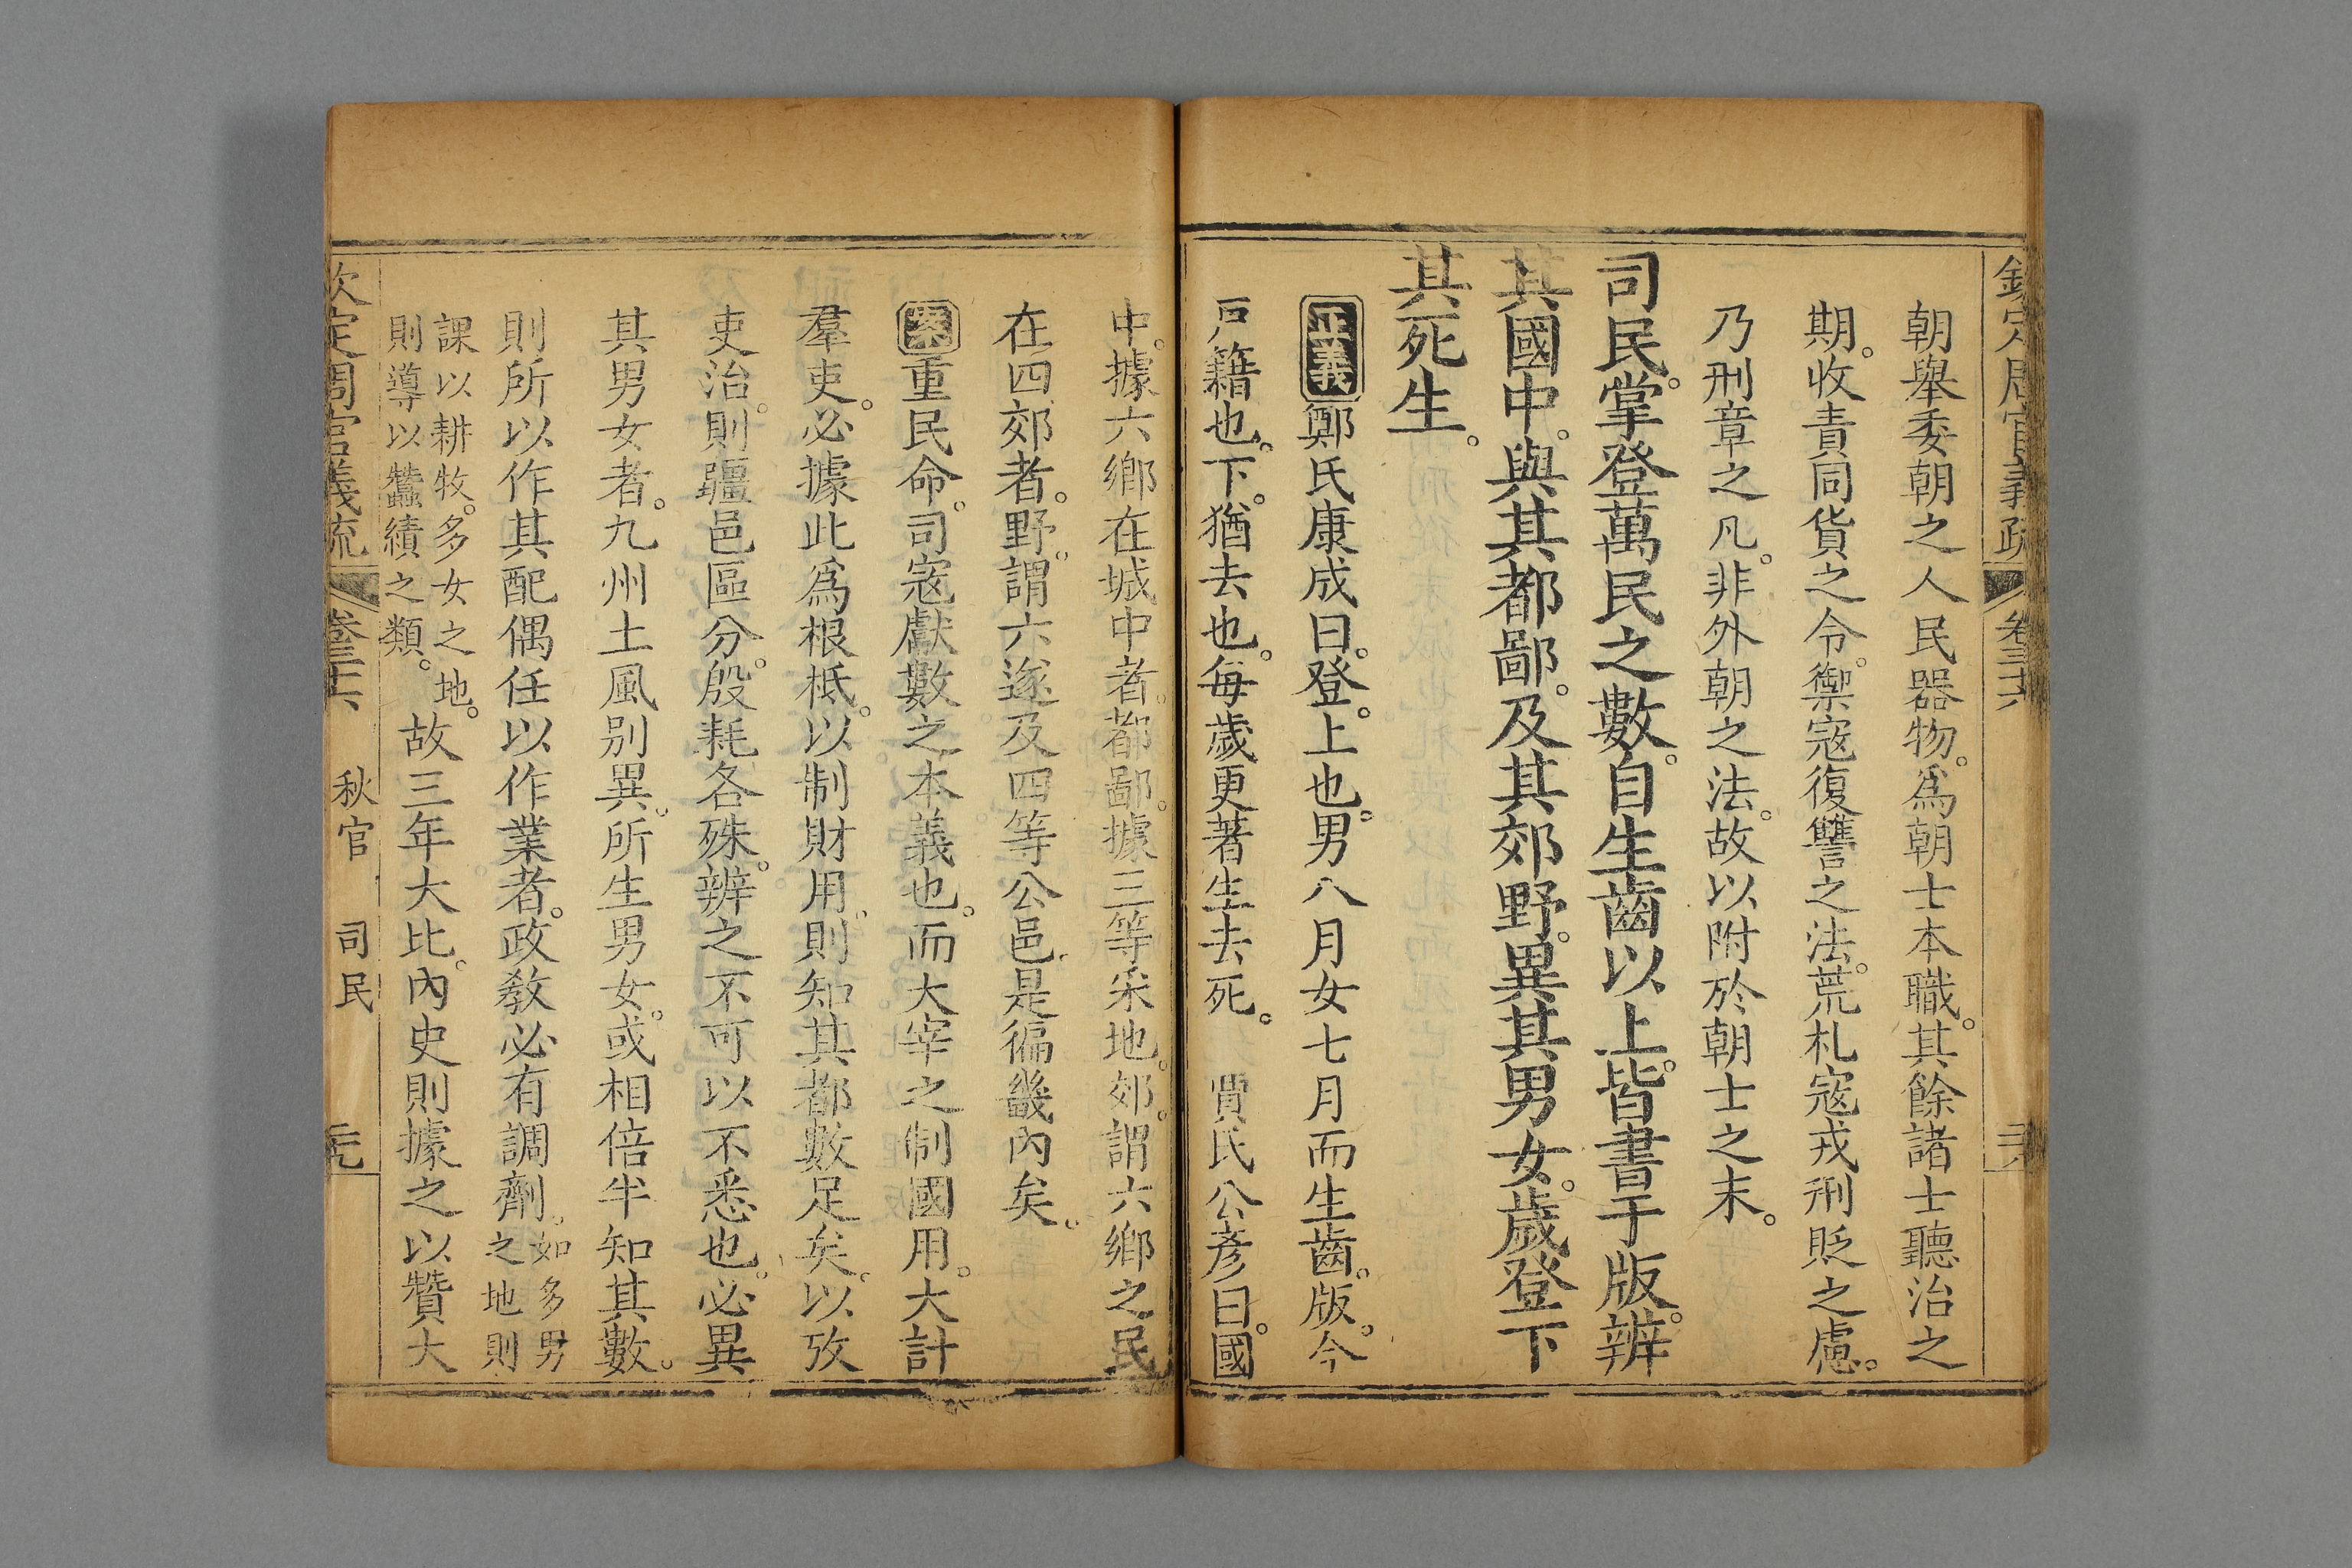 欽定周官義疏 卷三十六
朝舉委朝之人民器物。爲朝士本職。其餘諸士聽治之
期。收責同貨之令。禦寇復讐之法。荒札寇戎刑貶之慮。
乃刑章之凡。非外朝之法。故以附於朝士之末。
司民。掌登萬民之數。自生齒以上。皆書于版。辨
其國中。與其都鄙。及其郊野。異其男女。歲登下
其死生。
正義鄭氏康成曰。登。上也。男八月女七月而生齒。版。今
戸籍也。下。猶去也。每歲更著生去死。 賈氏公彥曰。國
中。據六鄉在城中者。都鄙。據三等采地。郊。謂六鄉之民
在四郊者。野。謂六遂及四等公邑。是徧畿內矣。
案重民命。司寇獻數之本義也。而大宰之制國用。大計
羣吏。必據此爲根柢。以制財用。則知其都數足矣。以攷
吏治。則疆邑區分。殷耗各殊。辨之不可以不悉也。必異
其男女者。九州土風別異。所生男女。或相倍半知其數。
則所以作其配偶任以作業者。政教必有調劑。如多男
之地則
課以耕牧。多女之地。
則導以蠶績之類。故三年大比。內史則據之以贊大
欽定周官義疏 卷三十六 秋官 司民 元